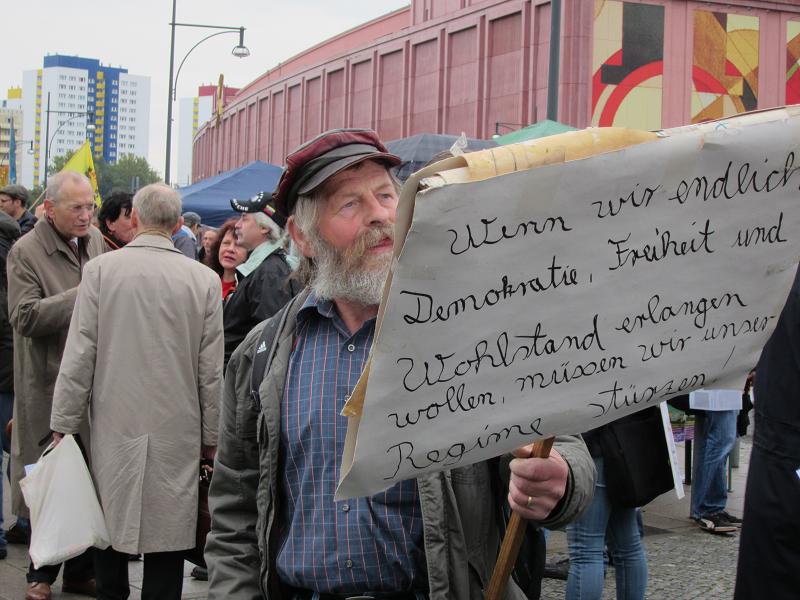 Wenn wir endlich
Demokratie, Freiheit und
Wohlstand erlangen
wollen, müssen wir unser
Regime stürzen!